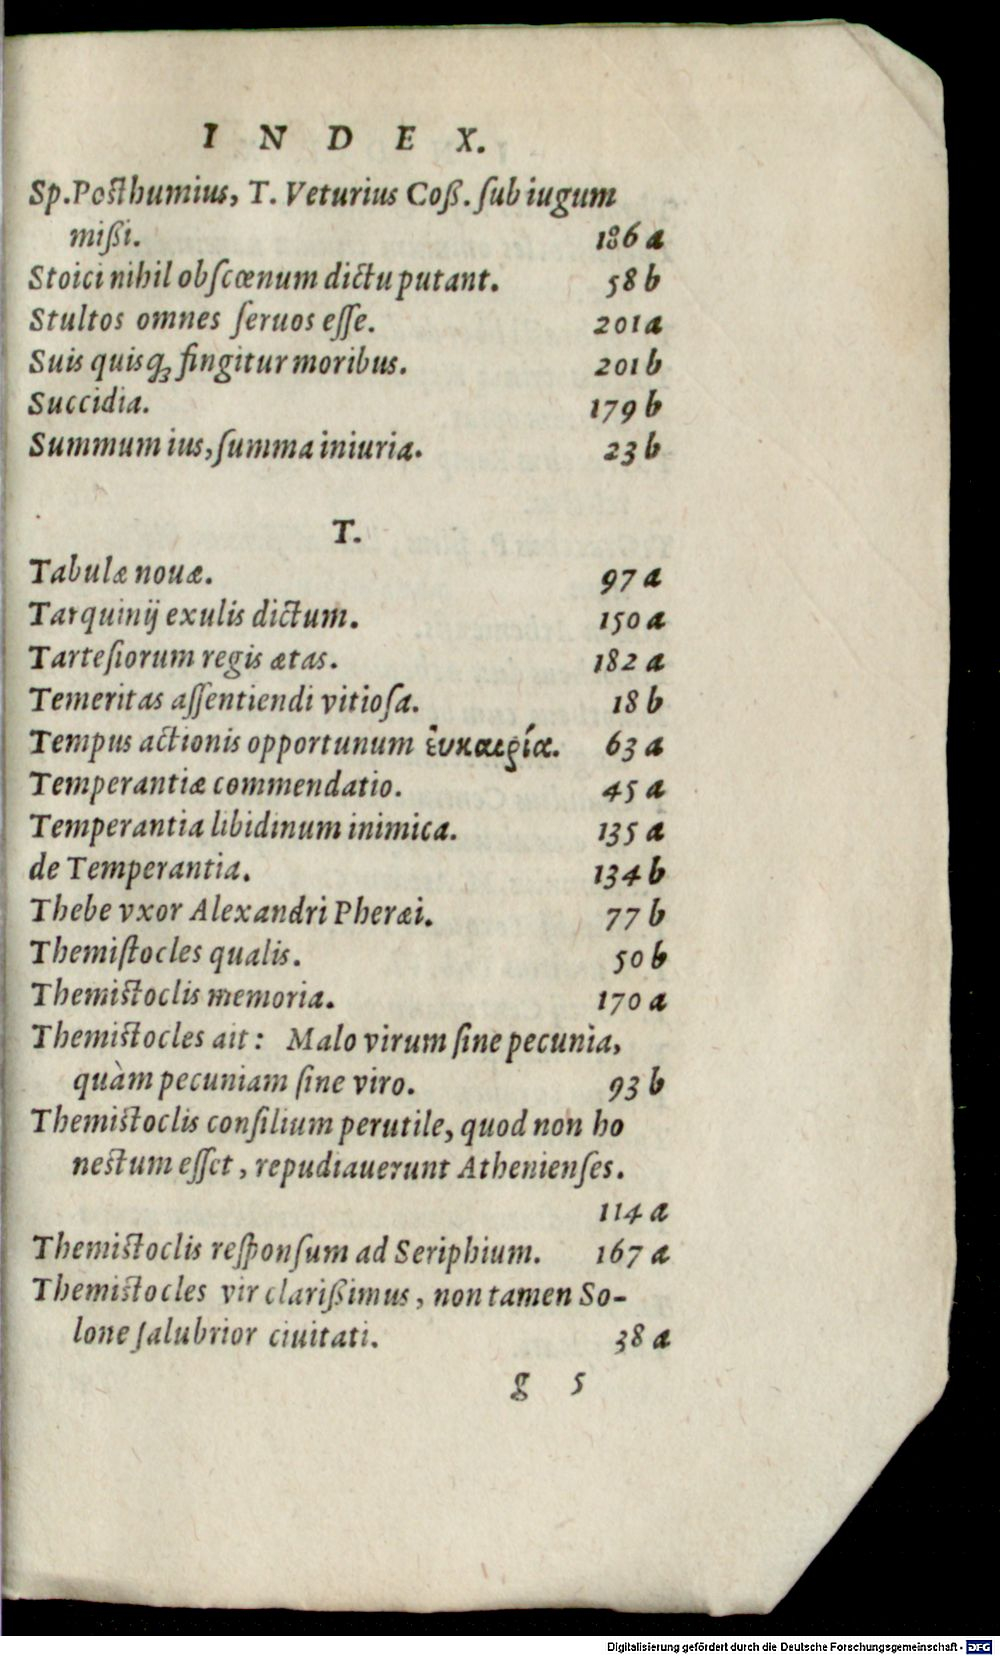 I N D E X.
Sp. Posthumius, T. Veturius Coß. ſub iugum
mißi. 186 a
Stoici nihil obſcœnum dictu putant. 58 b
Stultos omnes ſeruos eſſe. 201 a
Suis quisqꝫ fingitur moribus. 201 b
Succidia. 179 b
Summum ius, ſumma iniuria. 23 b
T.
Tabulæ nouæ. 97 a
Tarquinij exulis dictum. 150 a
Tarteſiorum regis ætas. 182 a
Temeritas aſſentiendi vitioſa. 18 b
Tempus actionis opportunum ἐυκαιρία. 63 a
Temperantiæ commendatio. 45 a
Temperantia libidinum inimica. 135 a
de Temperantia. 134 b
Thebe vxor Alexandri Pheræi. 77 b
Themiſtocles qualis. 50 b
Themistoclis memoria. 170 a
Themistocles ait: Malo virum ſine pecunia,
quàm pecuniam ſine viro. 93 b
Themistoclis conſilium perutile, quod non ho
nestum eſſet, repudiauerunt Athenienſes.
114 a
Themistoclis reſponſum ad Seriphium. 167 a
Themistocles vir clarißimus, non tamen So-
lone ſalubrior ciuitati. 38 a
g 5
Digitalisierung gefördert durch die Deutsche Forschungsgemeinschaft - DFG